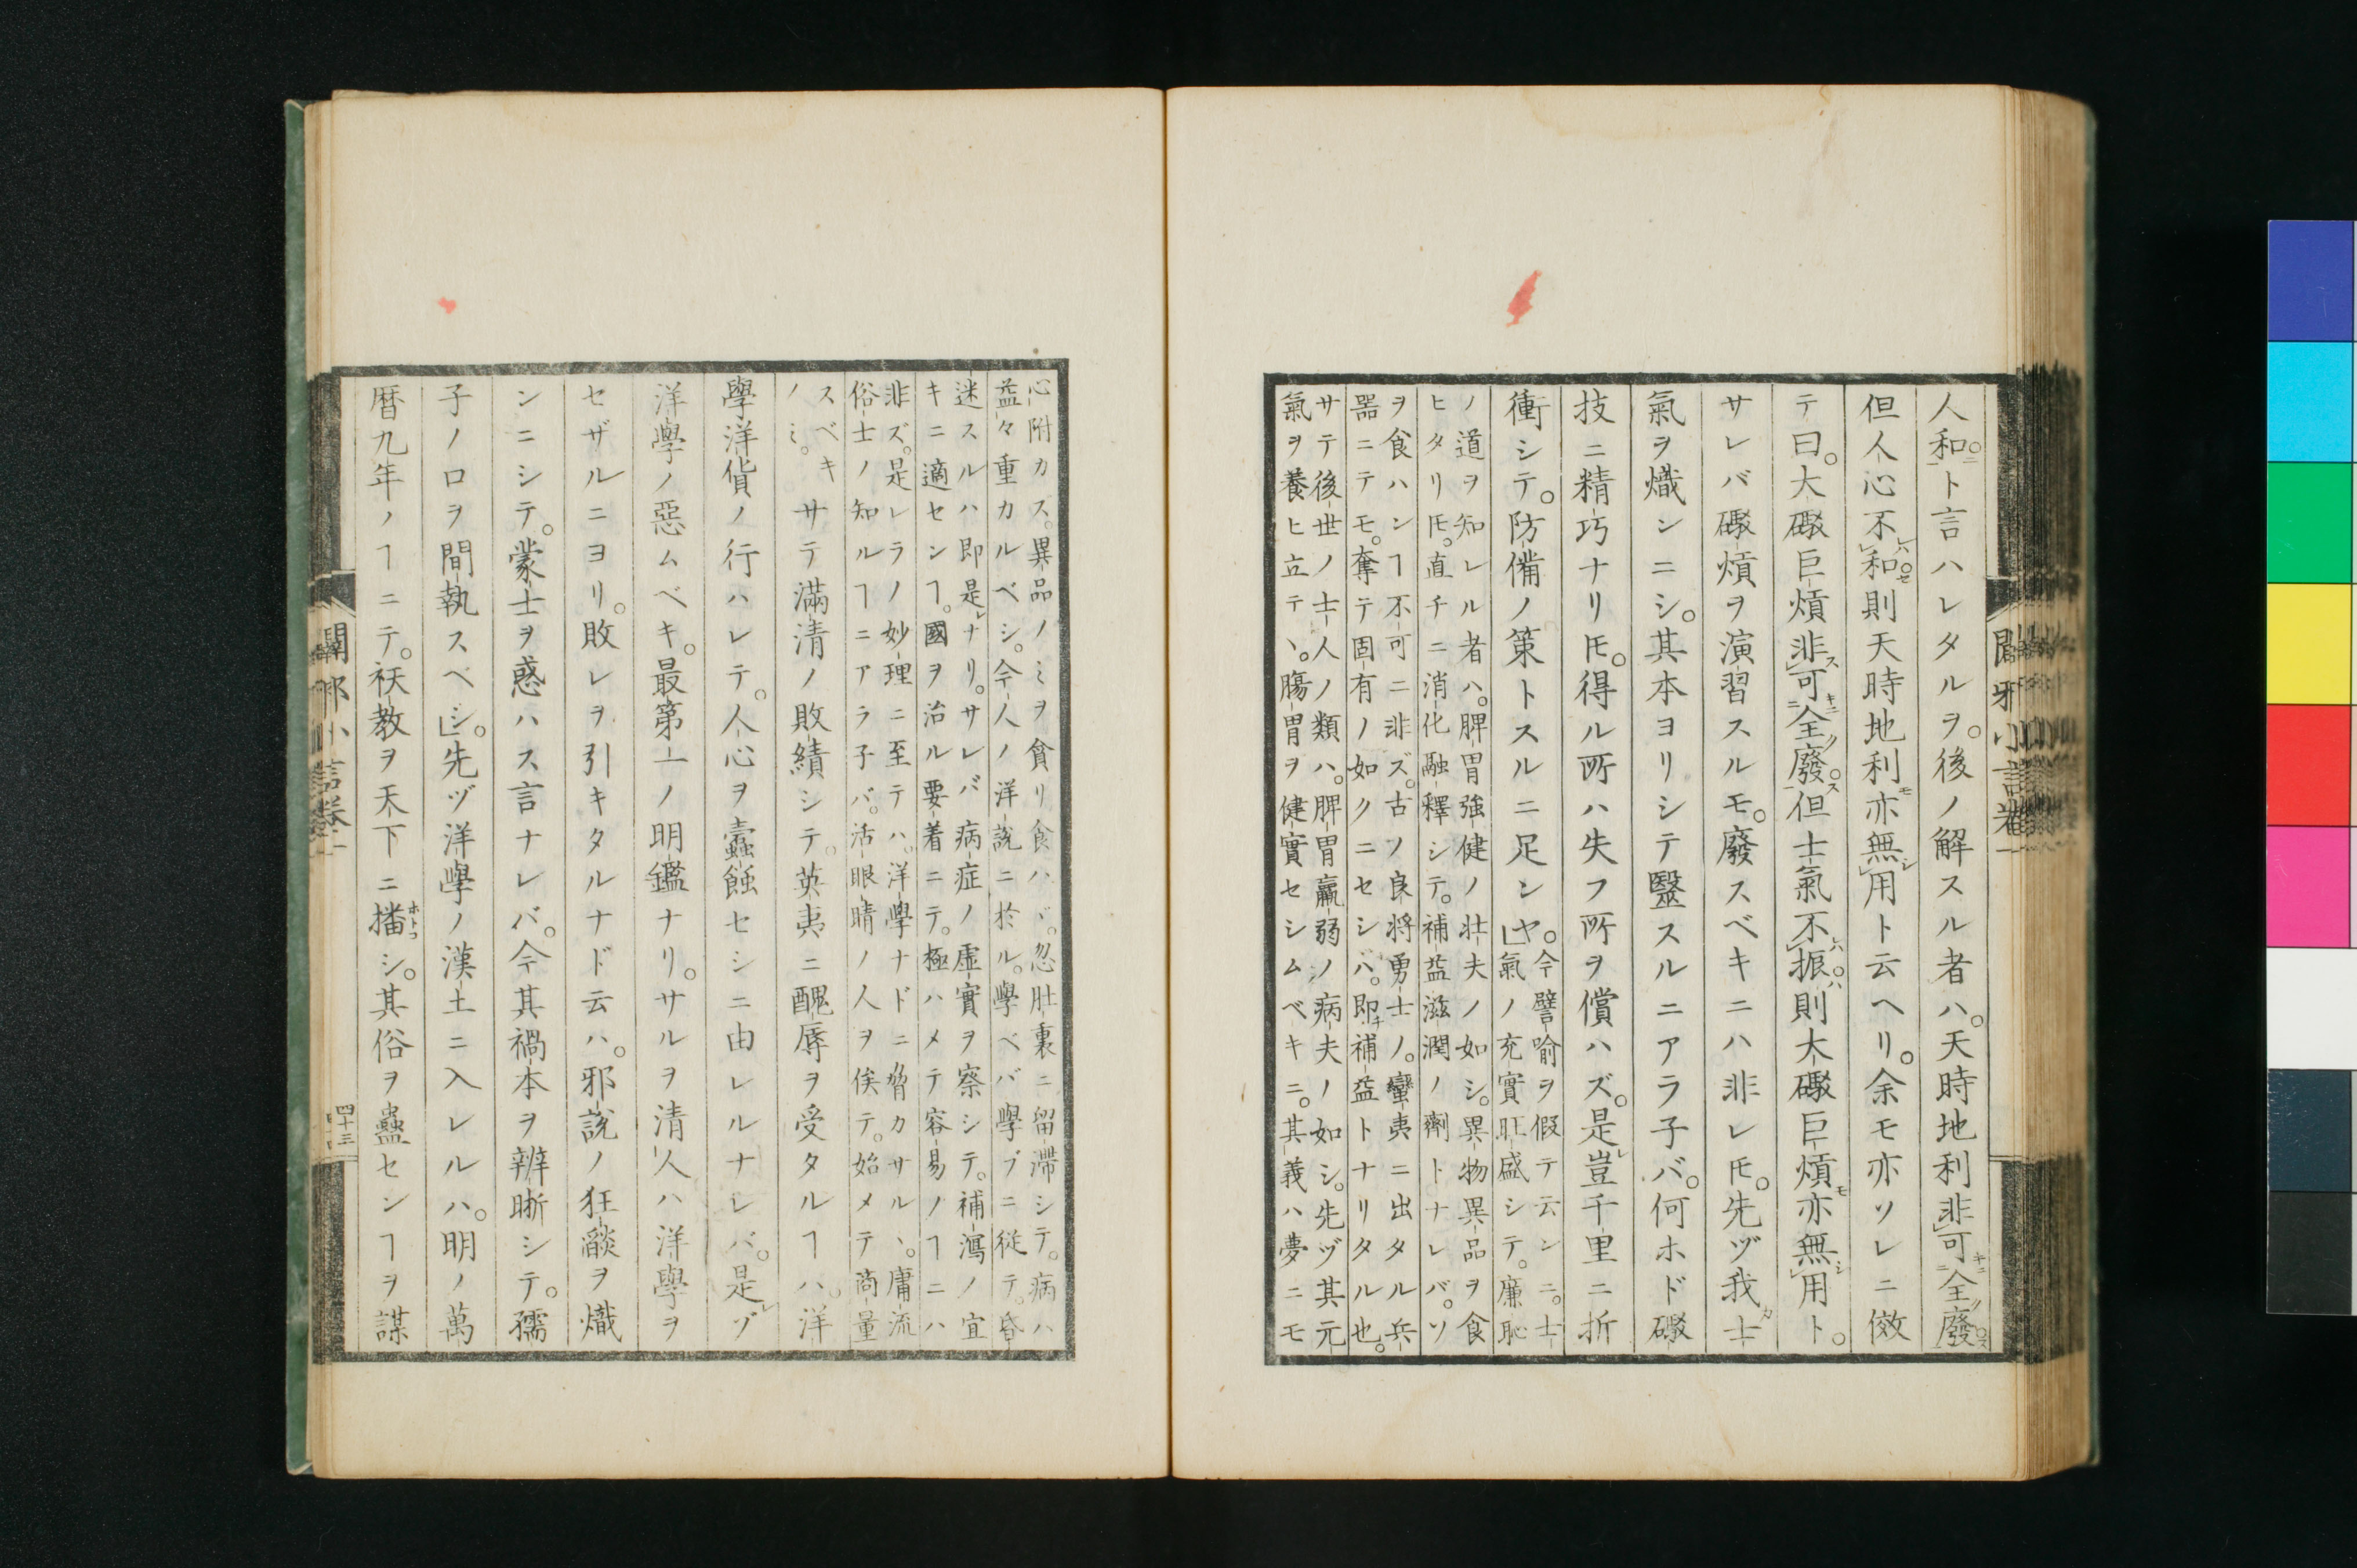 人和ト言ハレタルヲ。後ノ解スル者ハ。天時地利非可全廢
但人心不和則天時地利亦無用ト云ヘリ。余モ亦ソレニ傚
テ曰。大礮巨熕非可全廢但士氣不振則大礮巨熕亦無用ト。
サレバ礮熕ヲ演習スルモ。廢スベキニハ非レㇳモ。先ヅ我士
氣ヲ熾ンニシ。其本ヨリシテ毉スルニアラ子バ。何ホド礮
技ニ精巧ナリㇳモ。得ル所ハ失フ所ヲ償ハズ。是豈千里ニ折
衝シテ。防備ノ策トスルニ足ンヤ。今譬喻ヲ假テ云ンニ。士
氣ノ充實旺盛シテ。廉恥
ノ道ヲ知レル者ハ。脾胃強健ノ壮夫ノ如シ。異物異品ヲ食
ヒタリㇳモ。直チニ消化融釋シテ。補益滋潤ノ劑トナレバ。ソ
ヲ食ハンヿ不可ニ非ズ。古ノ良将勇士ノ。蠻夷ニ出タル兵
器ニテモ。奪テ固有ノ如クニセシバ。即チ補益トナリタル也。
サテ後世ノ士人ノ類ハ。脾胃羸弱ノ病夫ノ如シ。先ヅ其元
氣ヲ養ヒ立テヽ。膓胃ヲ健實セシムベキニ。其義ハ夢ニモ
心附カズ。異品ノミヲ貪リ食ハヾ。忽肚裏ニ留滯シテ。病ハ
益々重カルベシ。今人ノ洋說ニ於ル。學ベバ學ブニ従テ。昏
迷スルハ即是ナリ。サレバ病症ノ虛實ヲ察シテ。補瀉ノ宜
キニ適センヿ。國ヲ治ル要着ニテ。極ハメテ容易ノヿニハ
非ズ。是レラノ妙理ニ至テハ。洋學ナドニ脅カサルヽ。庸流
俗士ノ知ルヿニアラ子バ。活眼睛ノ人ヲ俟テ。始メテ商量
スベキ
ノミ。
サテ滿清ノ敗績シテ。英夷ニ醜辱ヲ受タルヿハ。洋
學洋貨ノ行ハレテ。人心ヲ蠹蝕セシニ由レルナレバ。是ゾ
洋學ノ惡ムベキ。最第一ノ明鑑ナリ。サルヲ清人ハ洋學ヲ
セザルニヨリ。敗レヲ引キタルナド云ハ。邪說ノ狂燄ヲ熾
ンニシテ。蒙士ヲ惑ハス言ナレバ。今其禍本ヲ辨晣シテ。孺
子ノ口ヲ間執スベシ。先ヅ洋學ノ漢土ニ入レルハ。明ノ萬
暦九年ノヿニテ。祆教ヲ天下ニ播シ。其俗ヲ蠱センヿヲ謀
闢邪小言卷一
四十三